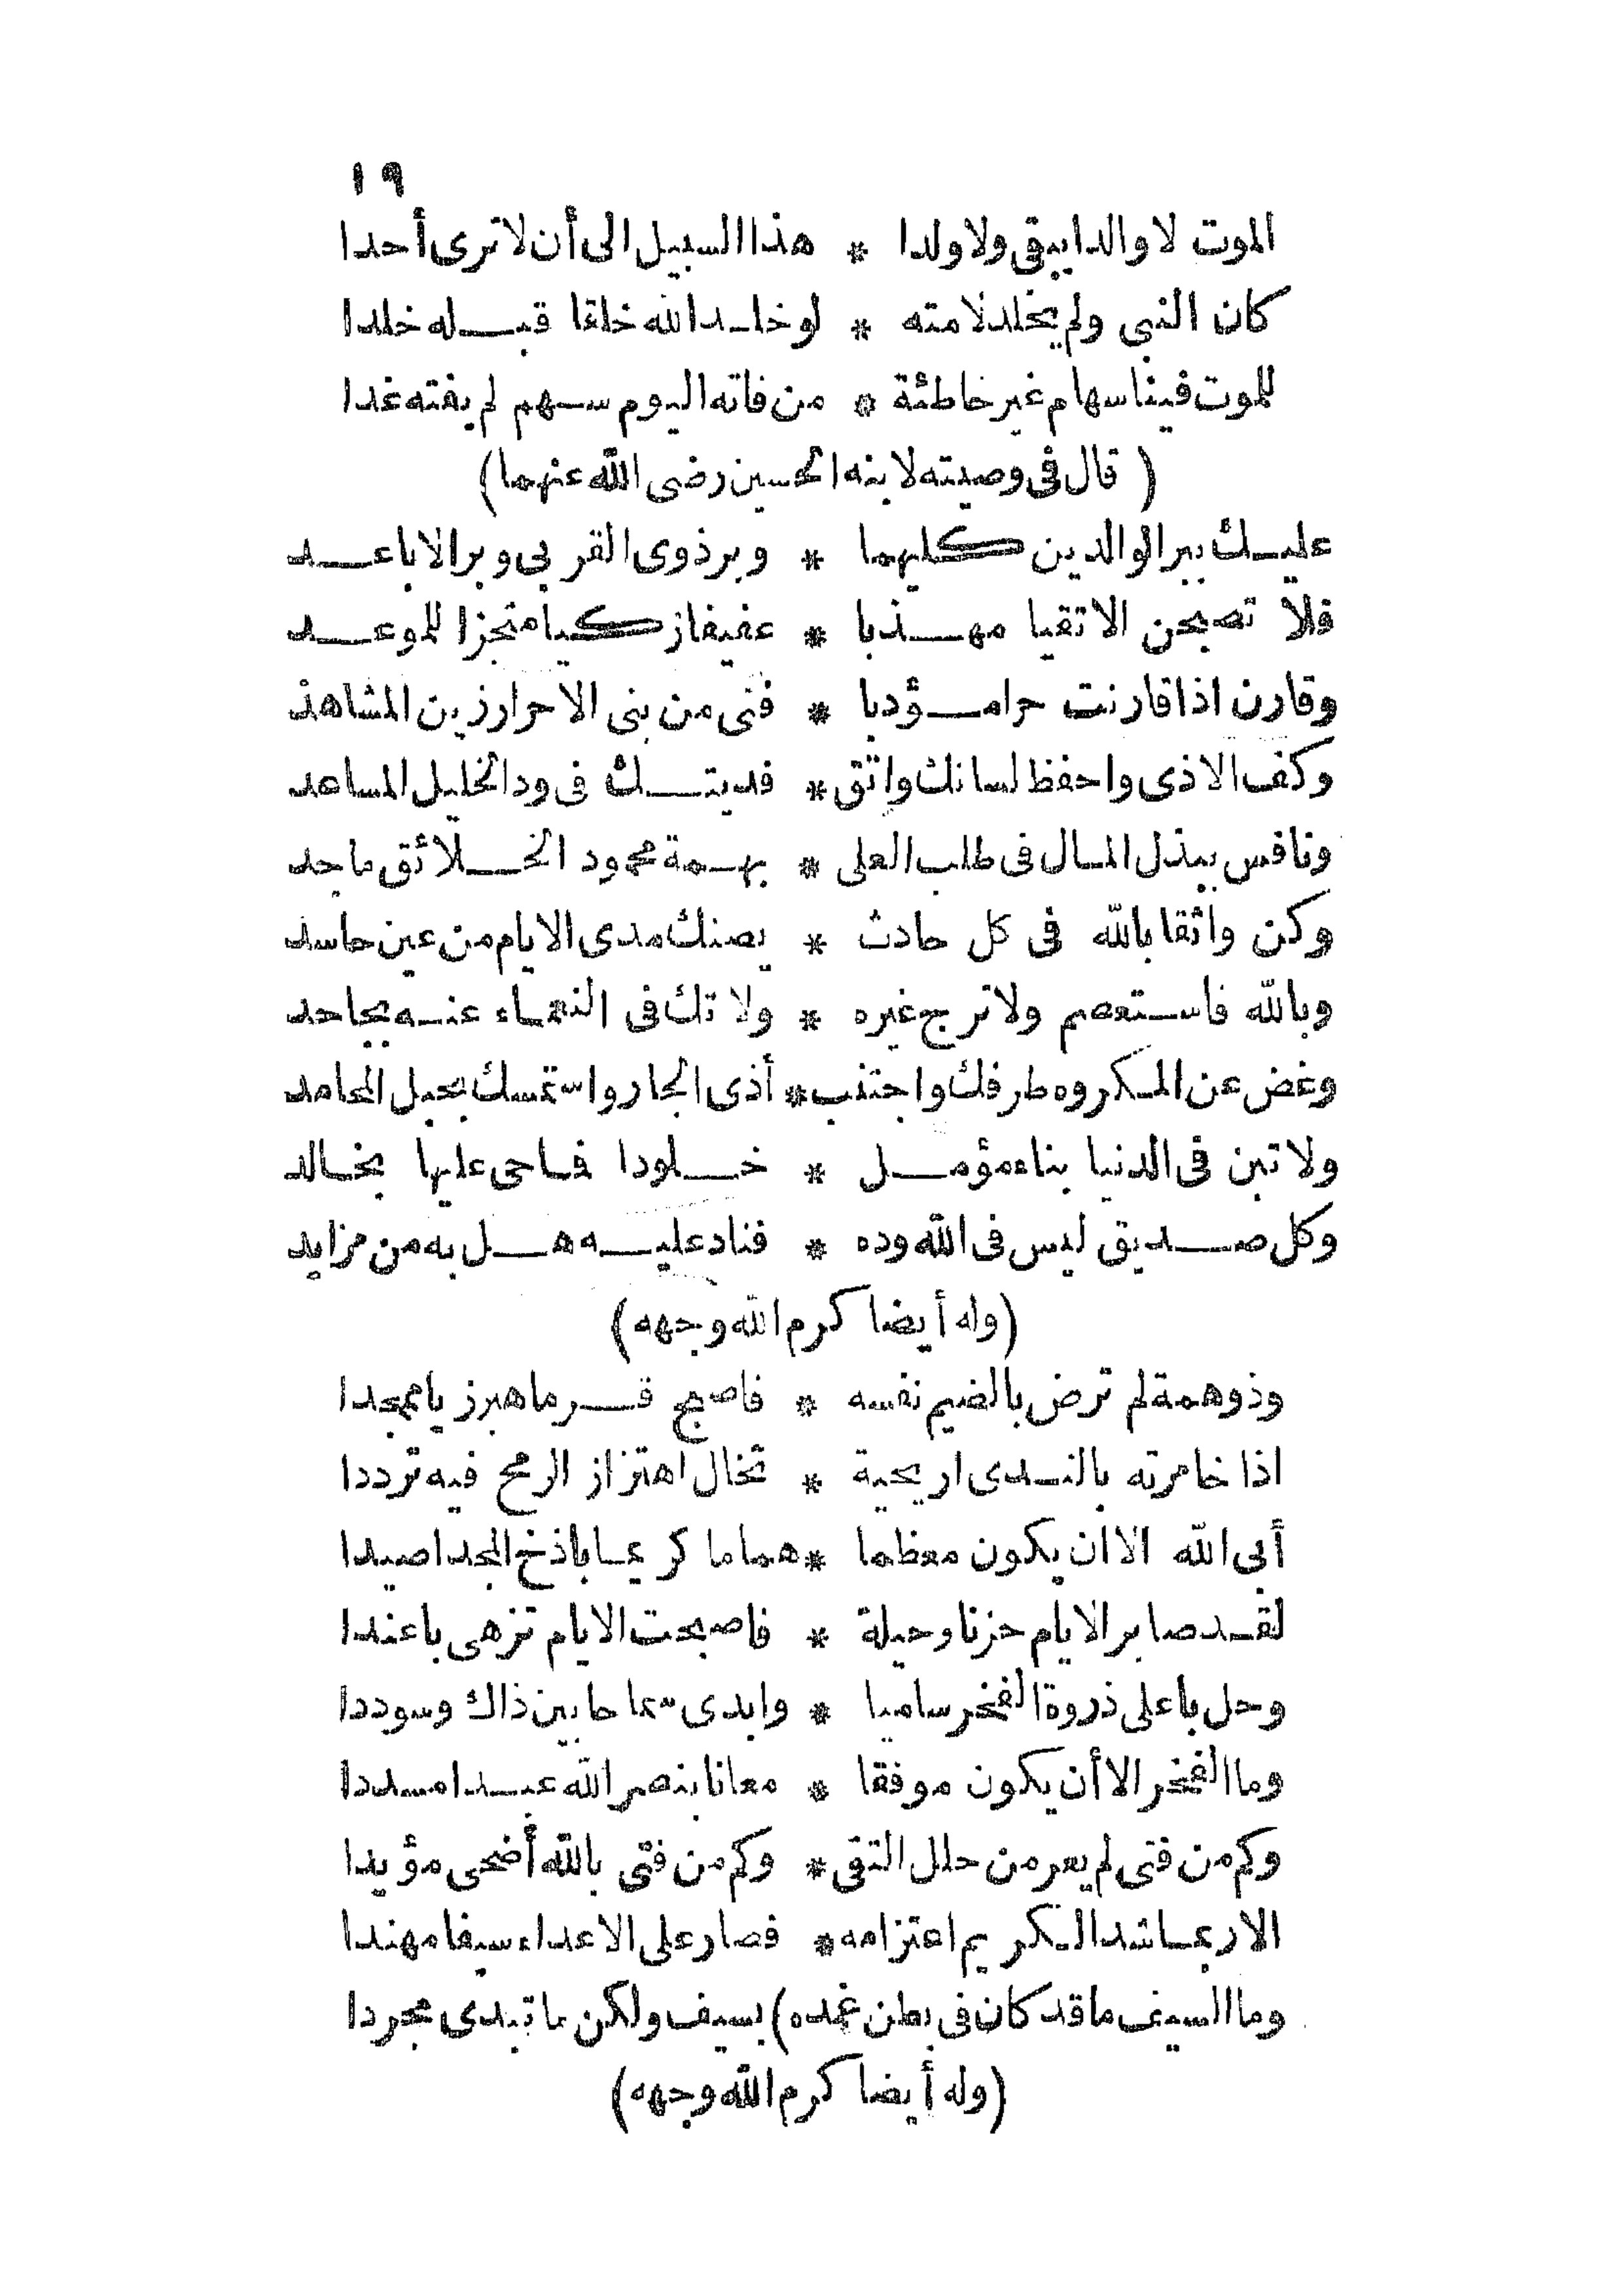 ١٩
الموت لا والدا يبقى ولا ولدا * هذا السبيل الى أن لا ترى أحدا
كان النبى ولم يخلد لامته * لو خلد الله خلقا قبله خلدا
للموت فينا سهام غير خاطئة * من فاته اليوم سهم لم يفته غدا
(قال فى وصيته لابنه الحسين رضى الله عنهما)
عليك ببر الوالدين كليهما * وبر ذوى القربى وبر الاباعد
فلا تصحبن الا تقيا مهذبا * عفيفا زكيا منجزا للموعد
وقارن اذا قارنت حرا مؤدبا * فتى من بنى الاحرار زين المشاهد
وكف الاذى واحفظ لسانك واتق * فديتك فى ود الخليل المساعد
ونافس ببذل المال فى طلب العلى * بهمة محمود الخلائق ماجد
وكن واثقا بالله فى كل حادث * يصنك مدى الايام من عين حاسد
وبالله فاستعصم ولا ترج غيره * ولا تك فى النعماء عنه بجاحد
وغض عن المكروه طرفك واجتنب * أذى الجار واستمسك بحبل المحامد
ولا تبن فى الدنيا بناء مؤمل * خلودا فما حى عليها بخالد
وكل صديق ليس فى الله وده * فناد عليه هل به من مزايد
(وله أيضا كرم الله وجهه)
وذو همة لم ترض بالضيم نفسه * فاصبح قرما هبرزيا ممجدا
اذا خامرته بالندى اريحية * تخال اهتزاز الرمح فيه ترددا
أبى الله الا ان يكون معظما * هماما كريما باذخ المجد اصيدا
لقد صابر الايام حزنا وحيلة * فاصبحت الايام تزهى باعندا
وحل باعلى ذروة الفخر ساميا * وابدى سماحا بين ذاك وسوددا
وما الفخر الا أن يكون موفقا * معانا بنصر الله عبدا مسددا
وكم من فتى لم يعر من حلل التقى * وكم من فتى بالله أضحى مؤيدا
الا ربما شد الكريم اعتزامه * فصار على الاعداء سيفا مهندا
وما السيف ما قد كان فى بطن غمده) بسيف ولكن ما تبدى مجردا
(وله أيضا كرم الله وجهه)